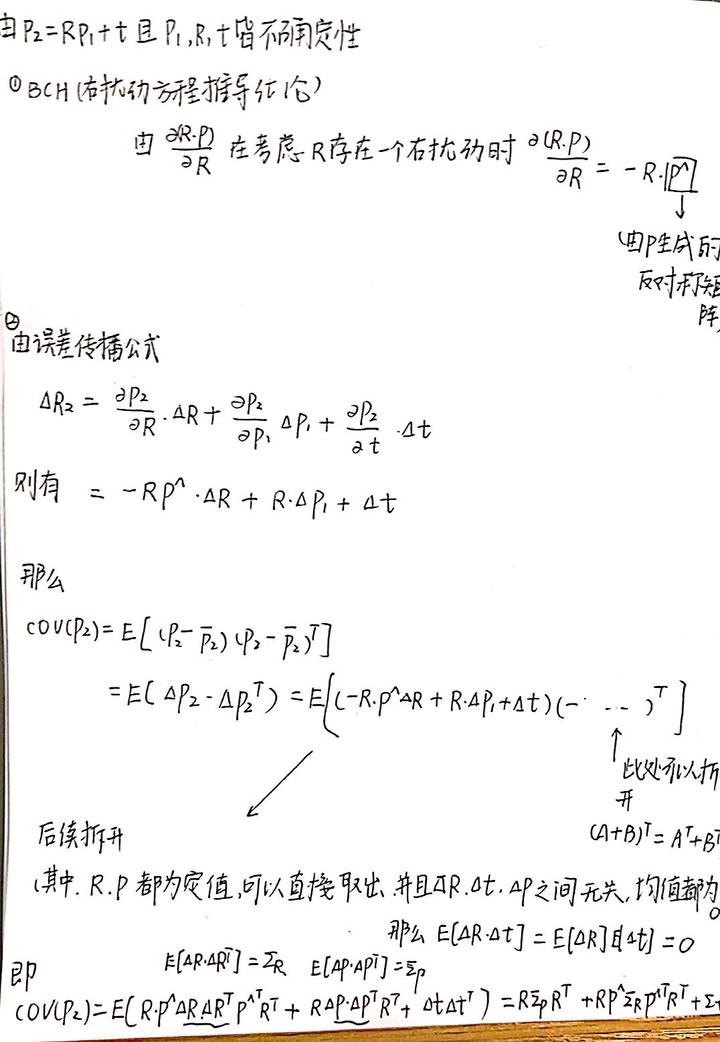 由 P₂=RP₁+t 且 P₁,R,t 皆不确定性
① BCH (右扰动方程推导结论)
由 ∂(R·P)/∂R 在考虑 R存在一个右扰动时 ∂(R·P)/∂R = -R·P^
↓
(由P生成的
反对称矩
阵)
② 由误差传播公式
ΔR₂ = ∂P₂/∂R · ΔR + ∂P₂/∂P₁ ΔP₁ + ∂P₂/∂t · Δt
则有 = -RP^·ΔR + R·ΔP₁ + Δt
那么
COV(P₂) = E[(P₂-P̄₂)(P₂-P̄₂)ᵀ]
= E(ΔP₂·ΔP₂ᵀ) = E[(-R·P^ΔR + R·ΔP₁+Δt)(-· ...)ᵀ]
↑ 此处可以拆
开
(A+B)ᵀ = Aᵀ+Bᵀ
后续拆开
(其中. R.P 都为定值,可以直接取出. 并且ΔR.Δt.ΔP之间无关,均值都为
0
那么 E[ΔR·Δt] = E[ΔR]E[Δt] = 0
即 E[ΔR·ΔRᵀ]=Σ_R E[ΔP·ΔPᵀ]=Σ_P
COV(P₂)=E(R·P^ΔRΔRᵀP^ᵀRᵀ + RΔP·ΔPᵀRᵀ + ΔtΔtᵀ) = RΣ_PRᵀ + RP^Σ_RP^ᵀRᵀ + Σt